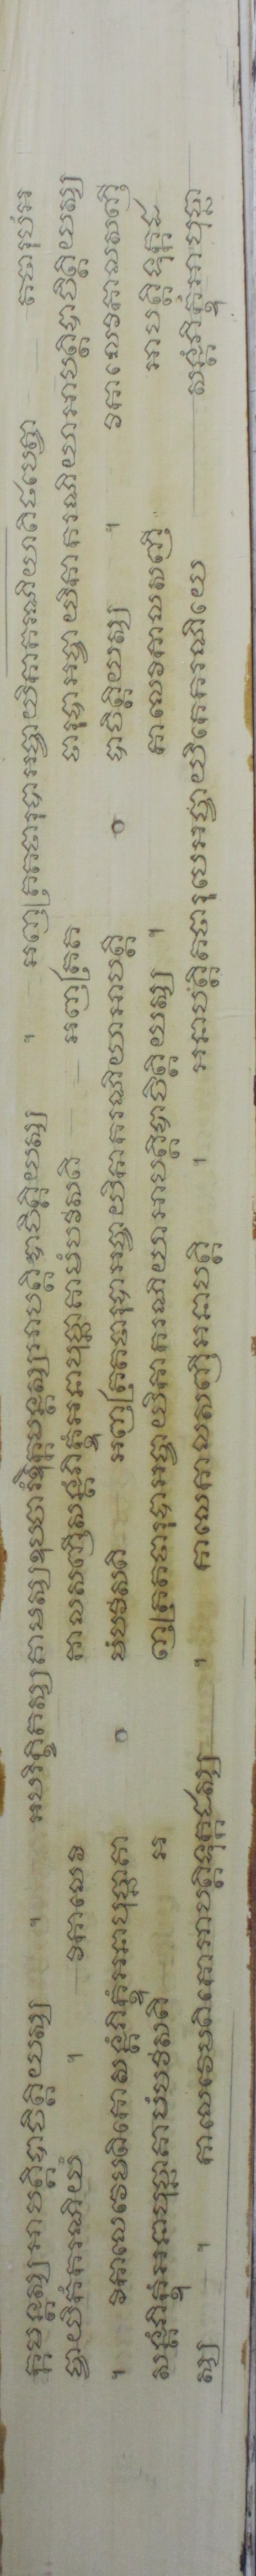 ក្កមន្តស្ស អាបត្តិ បាចិត្តិយស្ស ។ អបរិក្ខិត្តស្ស គាមស្ស ឧបចារំ ឱក្កមន្តស្ស អាបត្តិ បាចិត្តិយស្ស ។ អញ្ញត្រ តថារូបា អច្ចាយិកា ករណីយាតិ ឋបេត្វា តថារូបំ អ
ច្ចាយិកំ ករណីយំ ។ វិកាលេ វិ កាលសញ្ញី សន្តំ ភិក្ខុំ អនាបុច្ឆា គាមំ បវិសតិ អញ្ញត្រ ត ថារូបា អច្ចាយិកា ករណីយា អាបត្តិ បាចិត្តិយស្ស
។ វិកាលេ វេមតិកោ សន្តំ ភិក្ខុំ អនាបុច្ឆា គា មំ បវិសតិ អញ្ញត្រ តថារូបា អច្ចាយិកា ករណីយា អាបត្តិ បាចិត្តិយស្ស ។ វិកាលេ វិកាលសញ្ញី
សន្តំ ភិក្ខុំ អនាបុច្ឆា គាមំ បវិសតិ អ ញ្ញត្រ តថារូបា អច្ចាយិកា ករណីយា អាបត្តិ បាចិត្តិយស្ស ។ កាលេ វិកាលសញ្ញី អាបត្តិ ទុក្កដ
ស្ស ។ កាលេ វេមតិកោ អាបត្តិ ទុក្កដស្ស ។ កាលេ កាលសញ្ញី អនាបត្តិ ។ អនាបត្តិ តថារូបេ អច្ចាយិកេ ករណីយេ សន្តំ ភិក្ខុំ អាបុច្ឆា